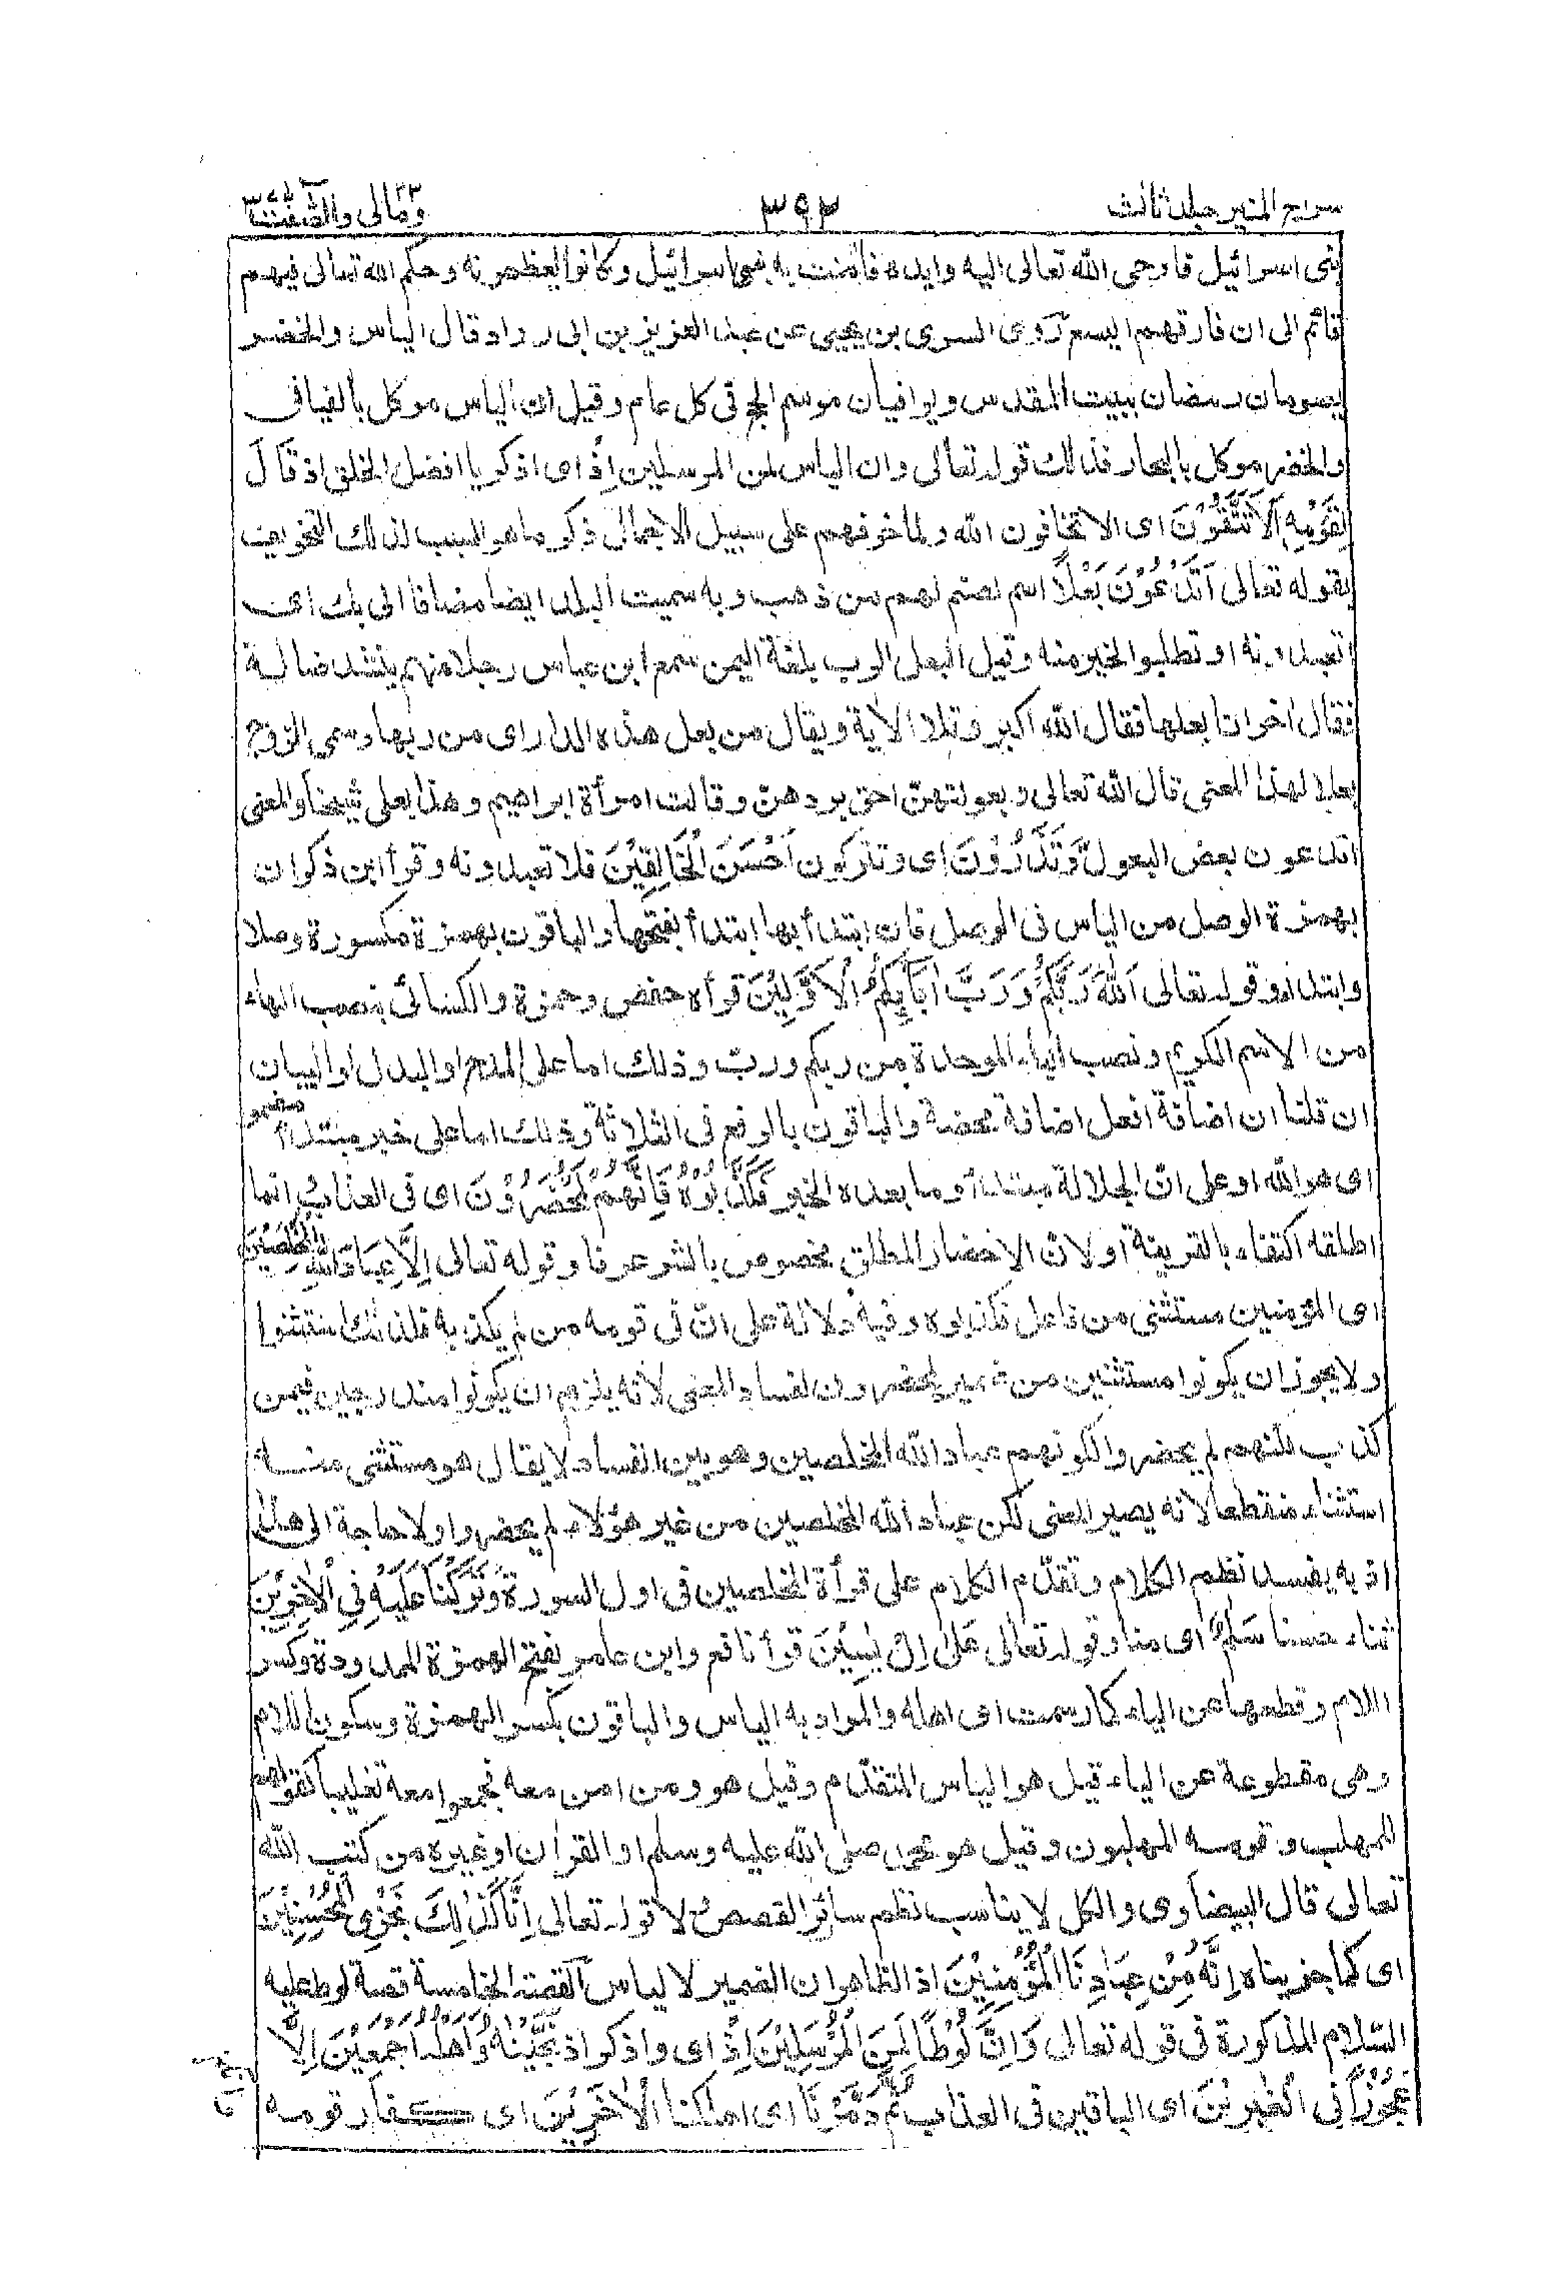 سراج المنير جلد ثالث ٣٩٢ ومالى ٢٣ والصّٰفّٰت ٣٧
بنى اسرائيل فاوحى الله تعالى اليه وايده فاٰمنت به بنو اسرائيل وكانوا يعظمونه وحكم الله تعالى فيهم
قائم الى ان فارقهم اليسع روى السرى بن يحيى عن عبد العزيز بن ابى رواد قال الياس والخضر
يصومان رمضان ببيت المقدس ويوافيان موسم الحج فى كل عام وقيل ان الياس موكل بالفيافى
والخضر موكل بالبحار فذلك قوله تعالى وان الياس لمن المرسلين اِذْ اى اذكر يا افضل الخلق اذ قَالَ
لِقَوْمِهٖ اَلَا تَتَّقُوْنَ اى الا تخافون الله ولما خوفهم على سبيل الاجمال ذكر ما هو السبب لذلك التخويف
بقوله تعالى اَتَدْعُوْنَ بَعْلًا اسم لصنم لهم من ذهب وبه سميت البلد ايضا مضافا الى بك اى
اتعبدونه او تطلبوا الخير منه وقيل البعل الرب بلغة اليمن سمع ابن عباس رجلا منهم ينشد ضالة
فقال اخر انا بعلها فقال الله اكبر وتلا الاٰية ويقال من بعل هذه الدار اى من ربها وسمى الزوج
بعلا لهذا المعنى قال الله تعالى وبعولتهنّ احق بردهنّ وقالت امرأة ابراهيم وهذا بعلى شيخا والمعنى
اتدعون بعض البعول وَّتَذَرُوْنَ اى وتتركون اَحْسَنَ الْخَالِقِيْنَ فلا تعبدونه وقرأ ابن ذكوان
بهمزة الوصل من الياس فى الوصل فان ابتدأ بها ابتدأ بفتحها والباقون بهمزة مكسورة وصلا
وابتداء وقوله تعالى اَللّٰهَ رَبَّكُمْ وَرَبَّ اٰبَآئِكُمُ الْاَوَّلِيْنَ قرأه حفص وحمزة والكسائى بنصب الهاء
من الاسم الكريم ونصب الباء الموحدة من ربكم وربّ وذلك اما على المدح او البدل او البيان
ان قلنا ان اضافة افعل اضافة محضة والباقون بالرفع فى الثلاثة وذلك اما على خبر مبتدأ مضمر
اى هو الله او على انّ الجلالة مبتدأ وما بعده الخبر فَكَذَّبُوْهُ فَاِنَّهُمْ لَمُحْضَرُوْنَ اى فى العذاب انما
اطلقه اكتفاء بالقرينة او لانّ الاحضار المطلق مخصوص بالشر عرفا وقوله تعالى اِلَّا عِبَادَ اللّٰهِ الْمُخْلَصِيْنَ
اى المؤمنين مستثنى من فاعل فكذبوه وفيه دلالة على انّ فى قومه من لم يكذبه فلذلك استثنوا
ولا يجوز ان يكونوا مستثنين من ضمير لمحضرون لفساد المعنى لأنه يلزم ان يكونوا مندرجين فيمن
كذب لكنهم لم يحضروا لكونهم عباد الله المخلصين وهو بين الفساد لا يقال هو مستثنى منه
استثناء منقطعا لانه يصير المعنى لكن عباد الله المخلصين من غير هؤلاء لم يحضروا ولا حاجة الى هذا
اذ به يفسد نظم الكلام وتقدّم الكلام على قرأة المخلصين فى اول السورة وَتَرَكْنَا عَلَيْهِ فِى الْاٰخِرِيْنَ
ثناء حسنا سَلٰمٌ اى منا وقوله تعالى عَلٰى اِلْ يَاسِيْنَ قرأ نافع وابن عامر بفتح الهمزة الممدودة وكسر
اللام وقطعها عن الياء كما رسمت اى اهله والمراد به الياس والباقون بكسر الهمزة وسكون اللام
وهى مقطوعة عن الياء قيل هو الياس المتقدّم وقيل هو ومن اٰمن معه فجمعوا معه تغليبا كقولهم
للمهلب وقومه المهلبون وقيل هو محمد صلى الله عليه وسلم او القراٰن او غيره من كتب الله
تعالى قال البيضاوى والكل لا يناسب نظم سائر القصص ولا قوله تعالى اِنَّا كَذٰلِكَ نَجْزِى الْمُحْسِنِيْنَ
اى كما جزيناه اِنَّهٗ مِنْ عِبَادِنَا الْمُؤْمِنِيْنَ اذ الظاهر ان الضمير لالياس القصة الخامسة قصة لوط عليه
السّلام المذكورة فى قوله تعالى وَاِنَّ لُوْطًا لَمِنَ الْمُرْسَلِيْنَ اِذْ اى واذكر اذ نَجَّيْنٰهُ وَاَهْلَهٗٓ اَجْمَعِيْنَ اِلَّا
عَجُوْزًا فِى الْغٰبِرِيْنَ اى الباقين فى العذاب ثُمَّ دَمَّرْنَا اى اهلكنا الْاٰخَرِيْنَ اى كفار قومه